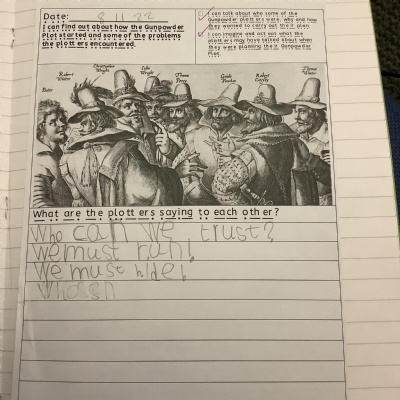 Date: 8.11.22
I can find out about how the Gunpowder
Plot started and some of the problems
the plotters encountered.
I can talk about who some of the
Gunpowder plotters were, why and how
they wanted to carry out their plan.
I can imagine and act out what the
plotters may have talked about when
they were planning their Gunpowder
Plot.
Bates
Robert
Winter
Christopher
Wright
John
Wright
Thomas
Percy
Guido
Fawkes
Robert
Catesby
Thomas
Winter
What are the plotters saying to each other?
Who can we trust?
We must run!
We must hide!